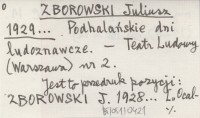 ZBOROWSKI Juliusz
1929... Podhalańskie dni
ludoznawcze. – Teatr Ludowy
(Warszawa) nr 2.
Jest to przedruk pozycji:
ZBOROWSKI J. 1928... „Ocal-